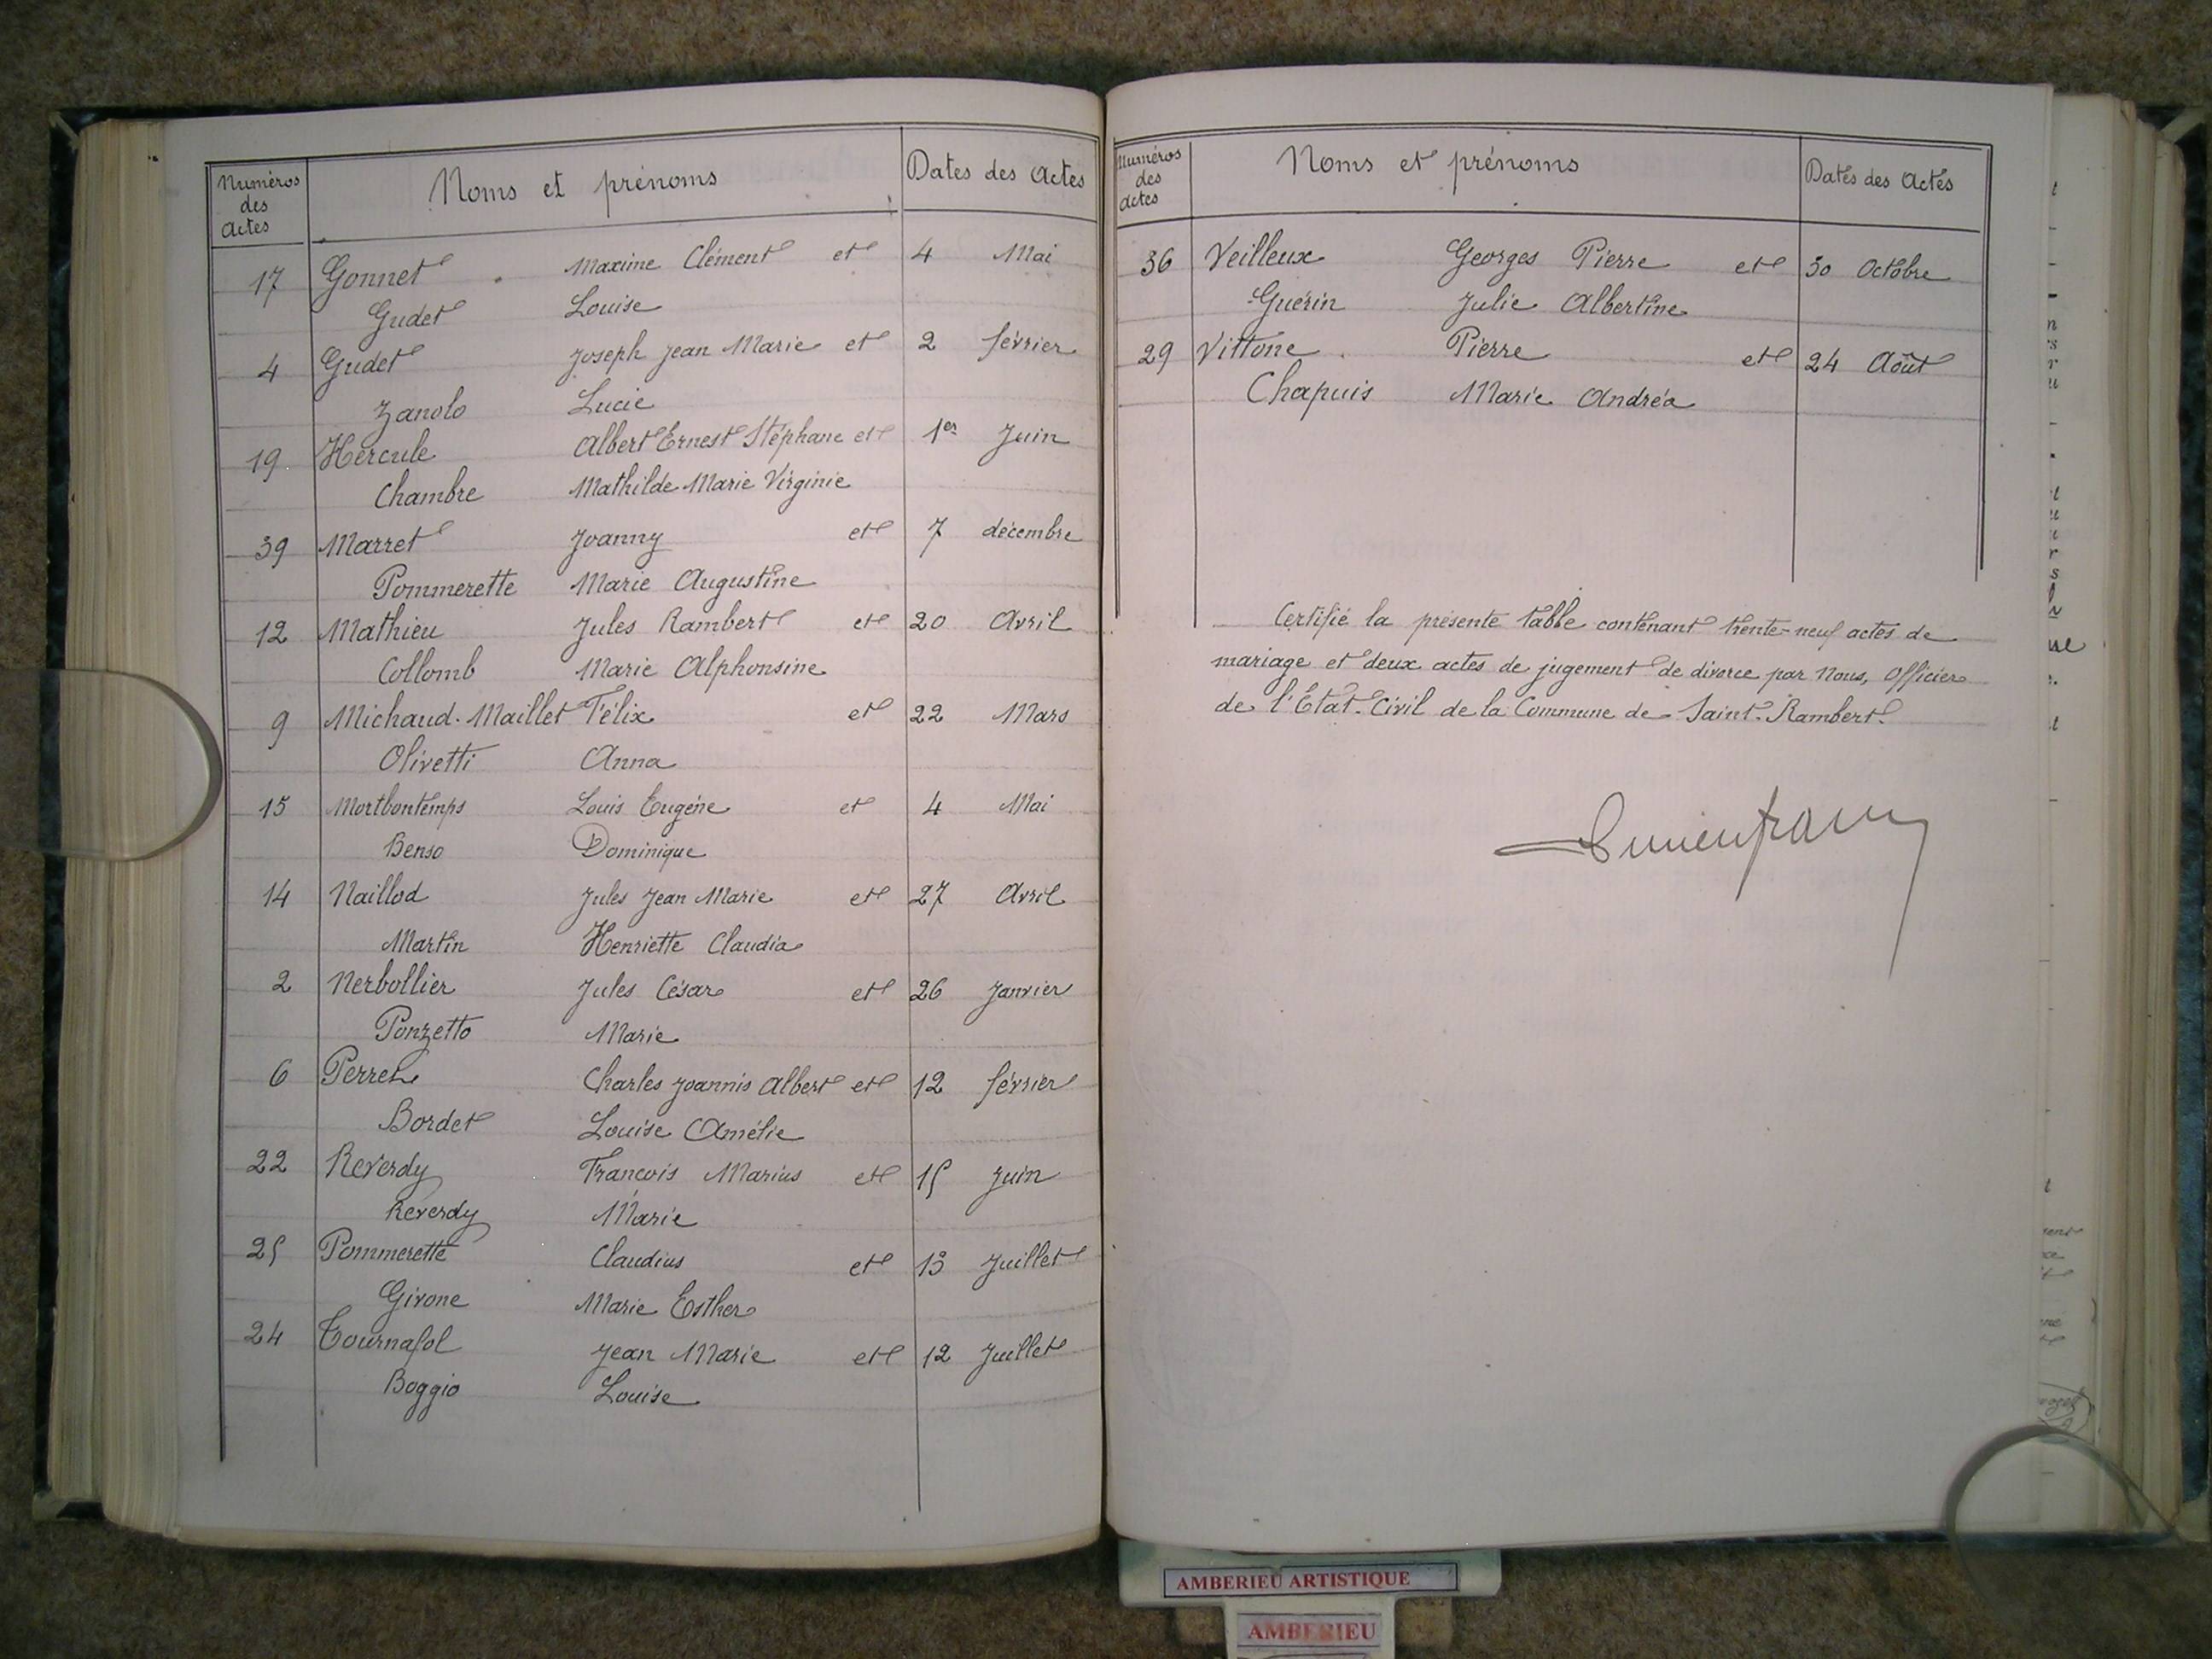 Numéros des Actes Noms et prénoms Dates des Actes
17 Gonnet Maxime Clément et 4 Mai
Gudet Louise
4 Gudet Joseph Jean Marie et 2 février
Zanolo Lucie
19 Hercule Albert Ernest Stéphane et 1er Juin
Chambre Mathilde Marie Virginie
39 Marret Joanny et 7 décembre
Pommerette Marie Augustine
12 Mathieu Jules Rambert et 20 Avril
Collomb Marie Alphonsine
9 Michaud-Maillet Félix et 22 Mars
Olivetti Anna
15 Mortbontemps Louis Eugène et 4 Mai
Benso Dominique
14 Naillod Jules Jean Marie et 27 Avril
Martin Henriette Claudia
2 Nerbollier Jules César et 26 Janvier
Ponzetto Marie
6 Perret Charles Joannis Albert et 12 février
Bordet Louise Amélie
22 Reverdy François Marius et 15 Juin
Reverdy Marie
25 Pommerette Claudius et 13 Juillet
Girone Marie Esther
24 Tournafol Jean Marie et 12 Juillet
Boggio Louise
Numéros des actes Noms et prénoms Dates des Actes
36 Veilleux Georges Pierre et 30 Octobre
Guérin Julie Albertine
29 Vittone Pierre et 24 Août
Chapuis Marie Andréa
Certifié la présente table contenant trente-neuf actes de
mariage et deux actes de jugement de divorce par Nous, Officier
de l'Etat-Civil de la Commune de Saint-Rambert.
AMBERIEU ARTISTIQUE
AMBERIEU